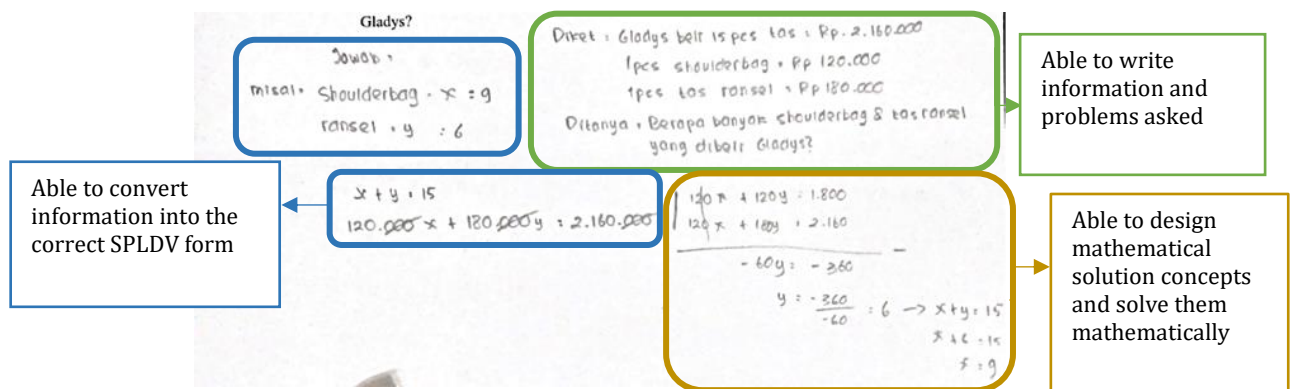 Gladys?
Jawab :
misal : Shoulderbag : x = 9
ransel : y = 6
Diket : Gladys beli 15 pcs tas = Rp. 2.160.000
1pcs shoulderbag = Rp 120.000
1pcs tas ransel = Rp 180.000
Ditanya : Berapa banyak shoulderbag & tas ransel
yang dibeli Gladys?
Able to write
information and
problems asked
Able to convert
information into the
correct SPLDV form
x + y = 15
120.000 x + 180.000 y = 2.160.000
120 x + 120 y = 1.800
120 x + 180y = 2.160
-60y = -360
y = -360/-60 = 6 → x+y = 15
x + 6 = 15
x = 9
Able to design
mathematical
solution concepts
and solve them
mathematically